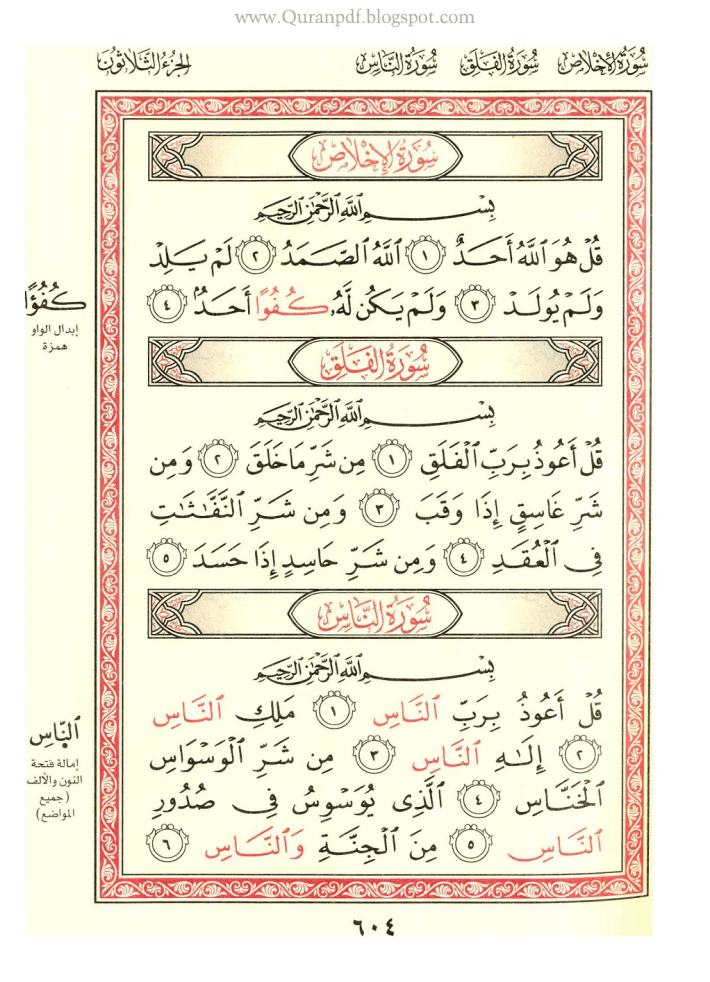 www.Quranpdf.blogspot.com
سُورَةُ الإِخْلَاصِ سُورَةُ الفَلَقِ سُورَةُ النَّاسِ الجُزْءُ الثَّلَاثُونَ
سُورَةُ الإِخْلَاصِ
بِسْمِ اللَّهِ الرَّحْمَٰنِ الرَّحِيمِ
قُلْ هُوَ ٱللَّهُ أَحَدٌ ١ ٱللَّهُ ٱلصَّمَدُ ٢ لَمْ يَلِدْ
وَلَمْ يُولَدْ ٣ وَلَمْ يَكُن لَّهُۥ كُفُوًا أَحَدٌۢ ٤
كُفُؤًا
إبدال الواو
همزة
سُورَةُ الفَلَقِ
بِسْمِ اللَّهِ الرَّحْمَٰنِ الرَّحِيمِ
قُلْ أَعُوذُ بِرَبِّ ٱلْفَلَقِ ١ مِن شَرِّ مَا خَلَقَ ٢ وَمِن
شَرِّ غَاسِقٍ إِذَا وَقَبَ ٣ وَمِن شَرِّ ٱلنَّفَّٰثَٰتِ
فِى ٱلْعُقَدِ ٤ وَمِن شَرِّ حَاسِدٍ إِذَا حَسَدَ ٥
سُورَةُ النَّاسِ
بِسْمِ اللَّهِ الرَّحْمَٰنِ الرَّحِيمِ
قُلْ أَعُوذُ بِرَبِّ ٱلنَّاسِ ١ مَلِكِ ٱلنَّاسِ
٢ إِلَٰهِ ٱلنَّاسِ ٣ مِن شَرِّ ٱلْوَسْوَاسِ
ٱلْخَنَّاسِ ٤ ٱلَّذِى يُوَسْوِسُ فِى صُدُورِ
ٱلنَّاسِ ٥ مِنَ ٱلْجِنَّةِ وَٱلنَّاسِ ٦
ٱلنَّاسِ
إمالة فتحة
النون والألف
(جميع
المواضع)
٦٠٤